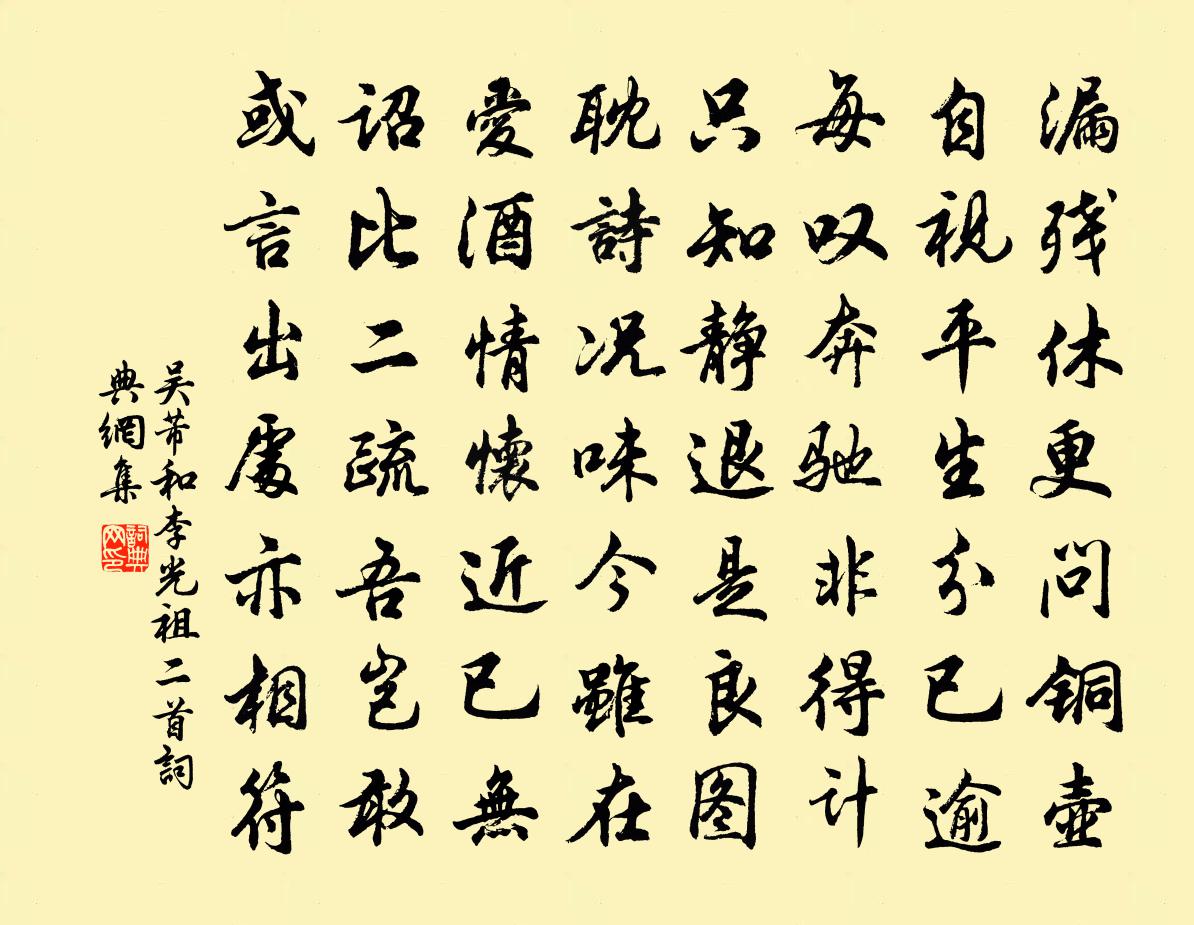 漏残休更问铜壶
自视平生分已逾
每叹奔驰非得计
只知静退是良图
耽詩况味今雖在
愛酒情懷近已無
詔比二疏吾岂敢
或言出處亦相符
吴芾和李光祖二首詞
典網集
詞典网印